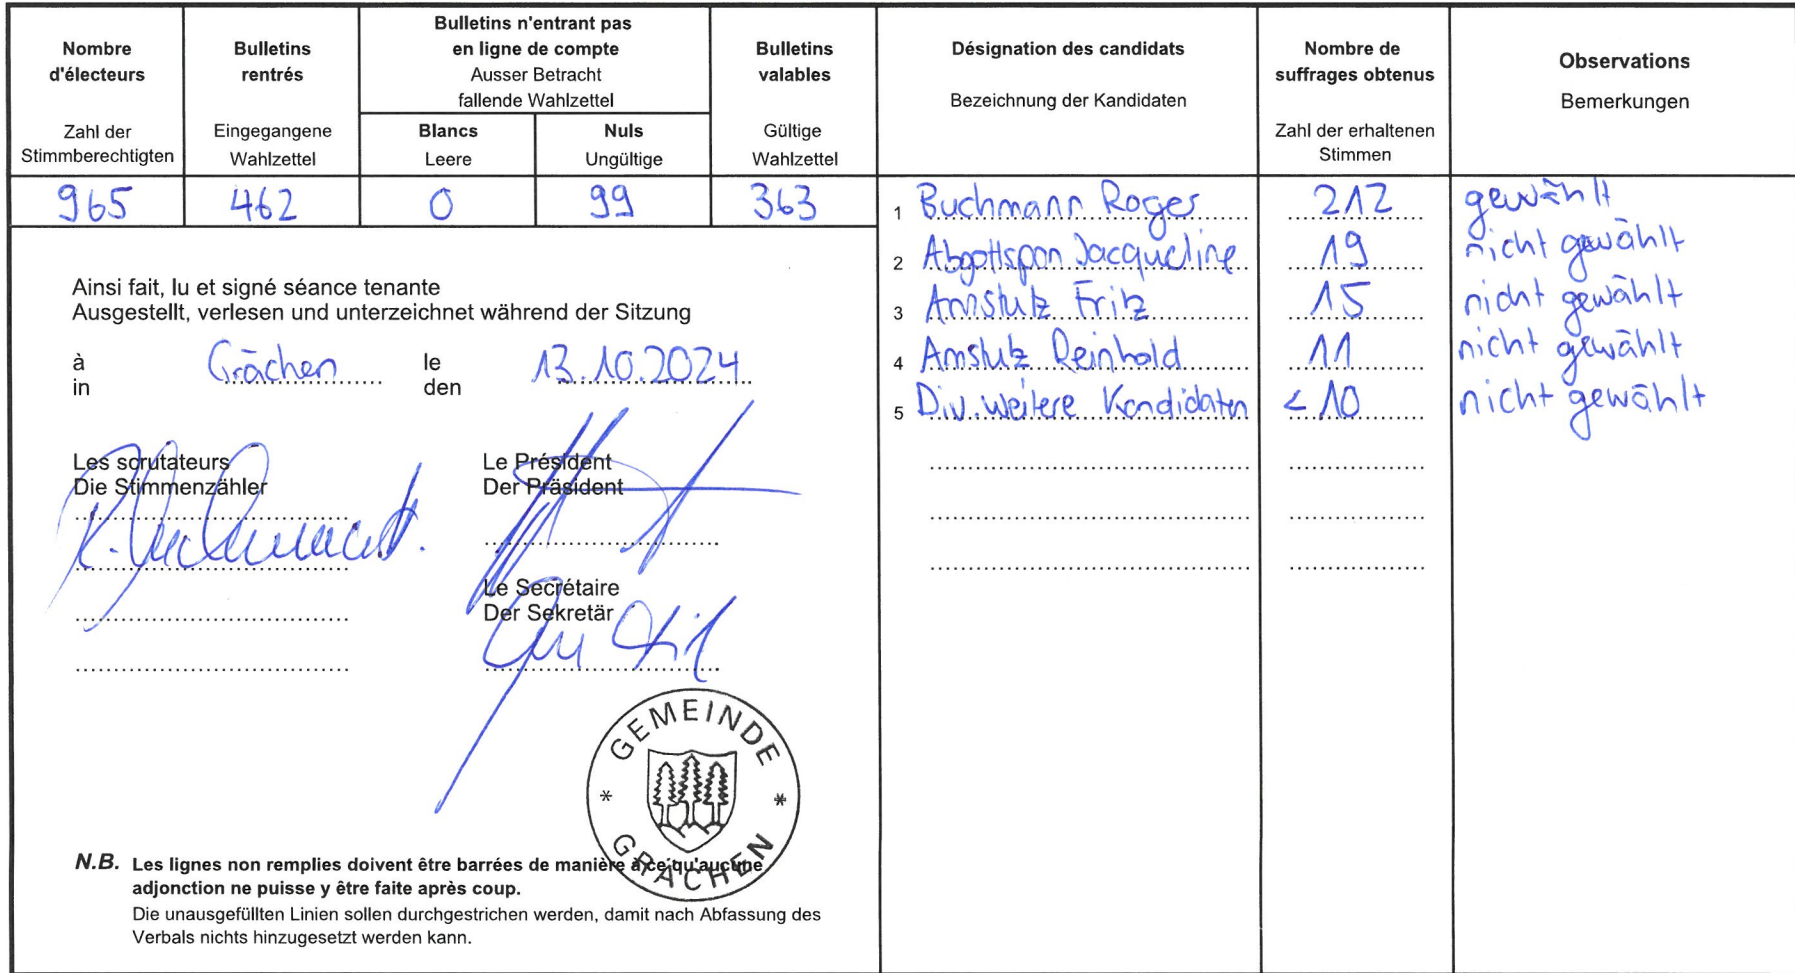 Nombre
d'électeurs
Zahl der
Stimmberechtigten
965
Bulletins
rentrés
Eingegangene
Wahlzettel
462
Bulletins n'entrant pas
en ligne de compte
Ausser Betracht
fallende Wahlzettel
Blancs
Leere
0
Nuls
Ungültige
99
Bulletins
valables
Gültige
Wahlzettel
363
Désignation des candidats
Bezeichnung der Kandidaten
Nombre de
suffrages obtenus
Zahl der erhaltenen
Stimmen
Observations
Bemerkungen
1 Buchmann Roger 212 gewählt
2 Abgottspon Jacqueline 19 nicht gewählt
3 Amstutz Fritz 15 nicht gewählt
4 Amstutz Reinhold 11 nicht gewählt
5 Div. weitere Kandidaten < 10 nicht gewählt
Ainsi fait, lu et signé séance tenante
Ausgestellt, verlesen und unterzeichnet während der Sitzung
à Grächen le 13.10.2024
in den
Les scrutateurs
Die Stimmenzähler
Le Président
Der Präsident
Le Secrétaire
Der Sekretär
GEMEINDE
* *
GRÄCHEN
N.B. Les lignes non remplies doivent être barrées de manière à ce qu'aucune
adjonction ne puisse y être faite après coup.
Die unausgefüllten Linien sollen durchgestrichen werden, damit nach Abfassung des
Verbals nichts hinzugesetzt werden kann.